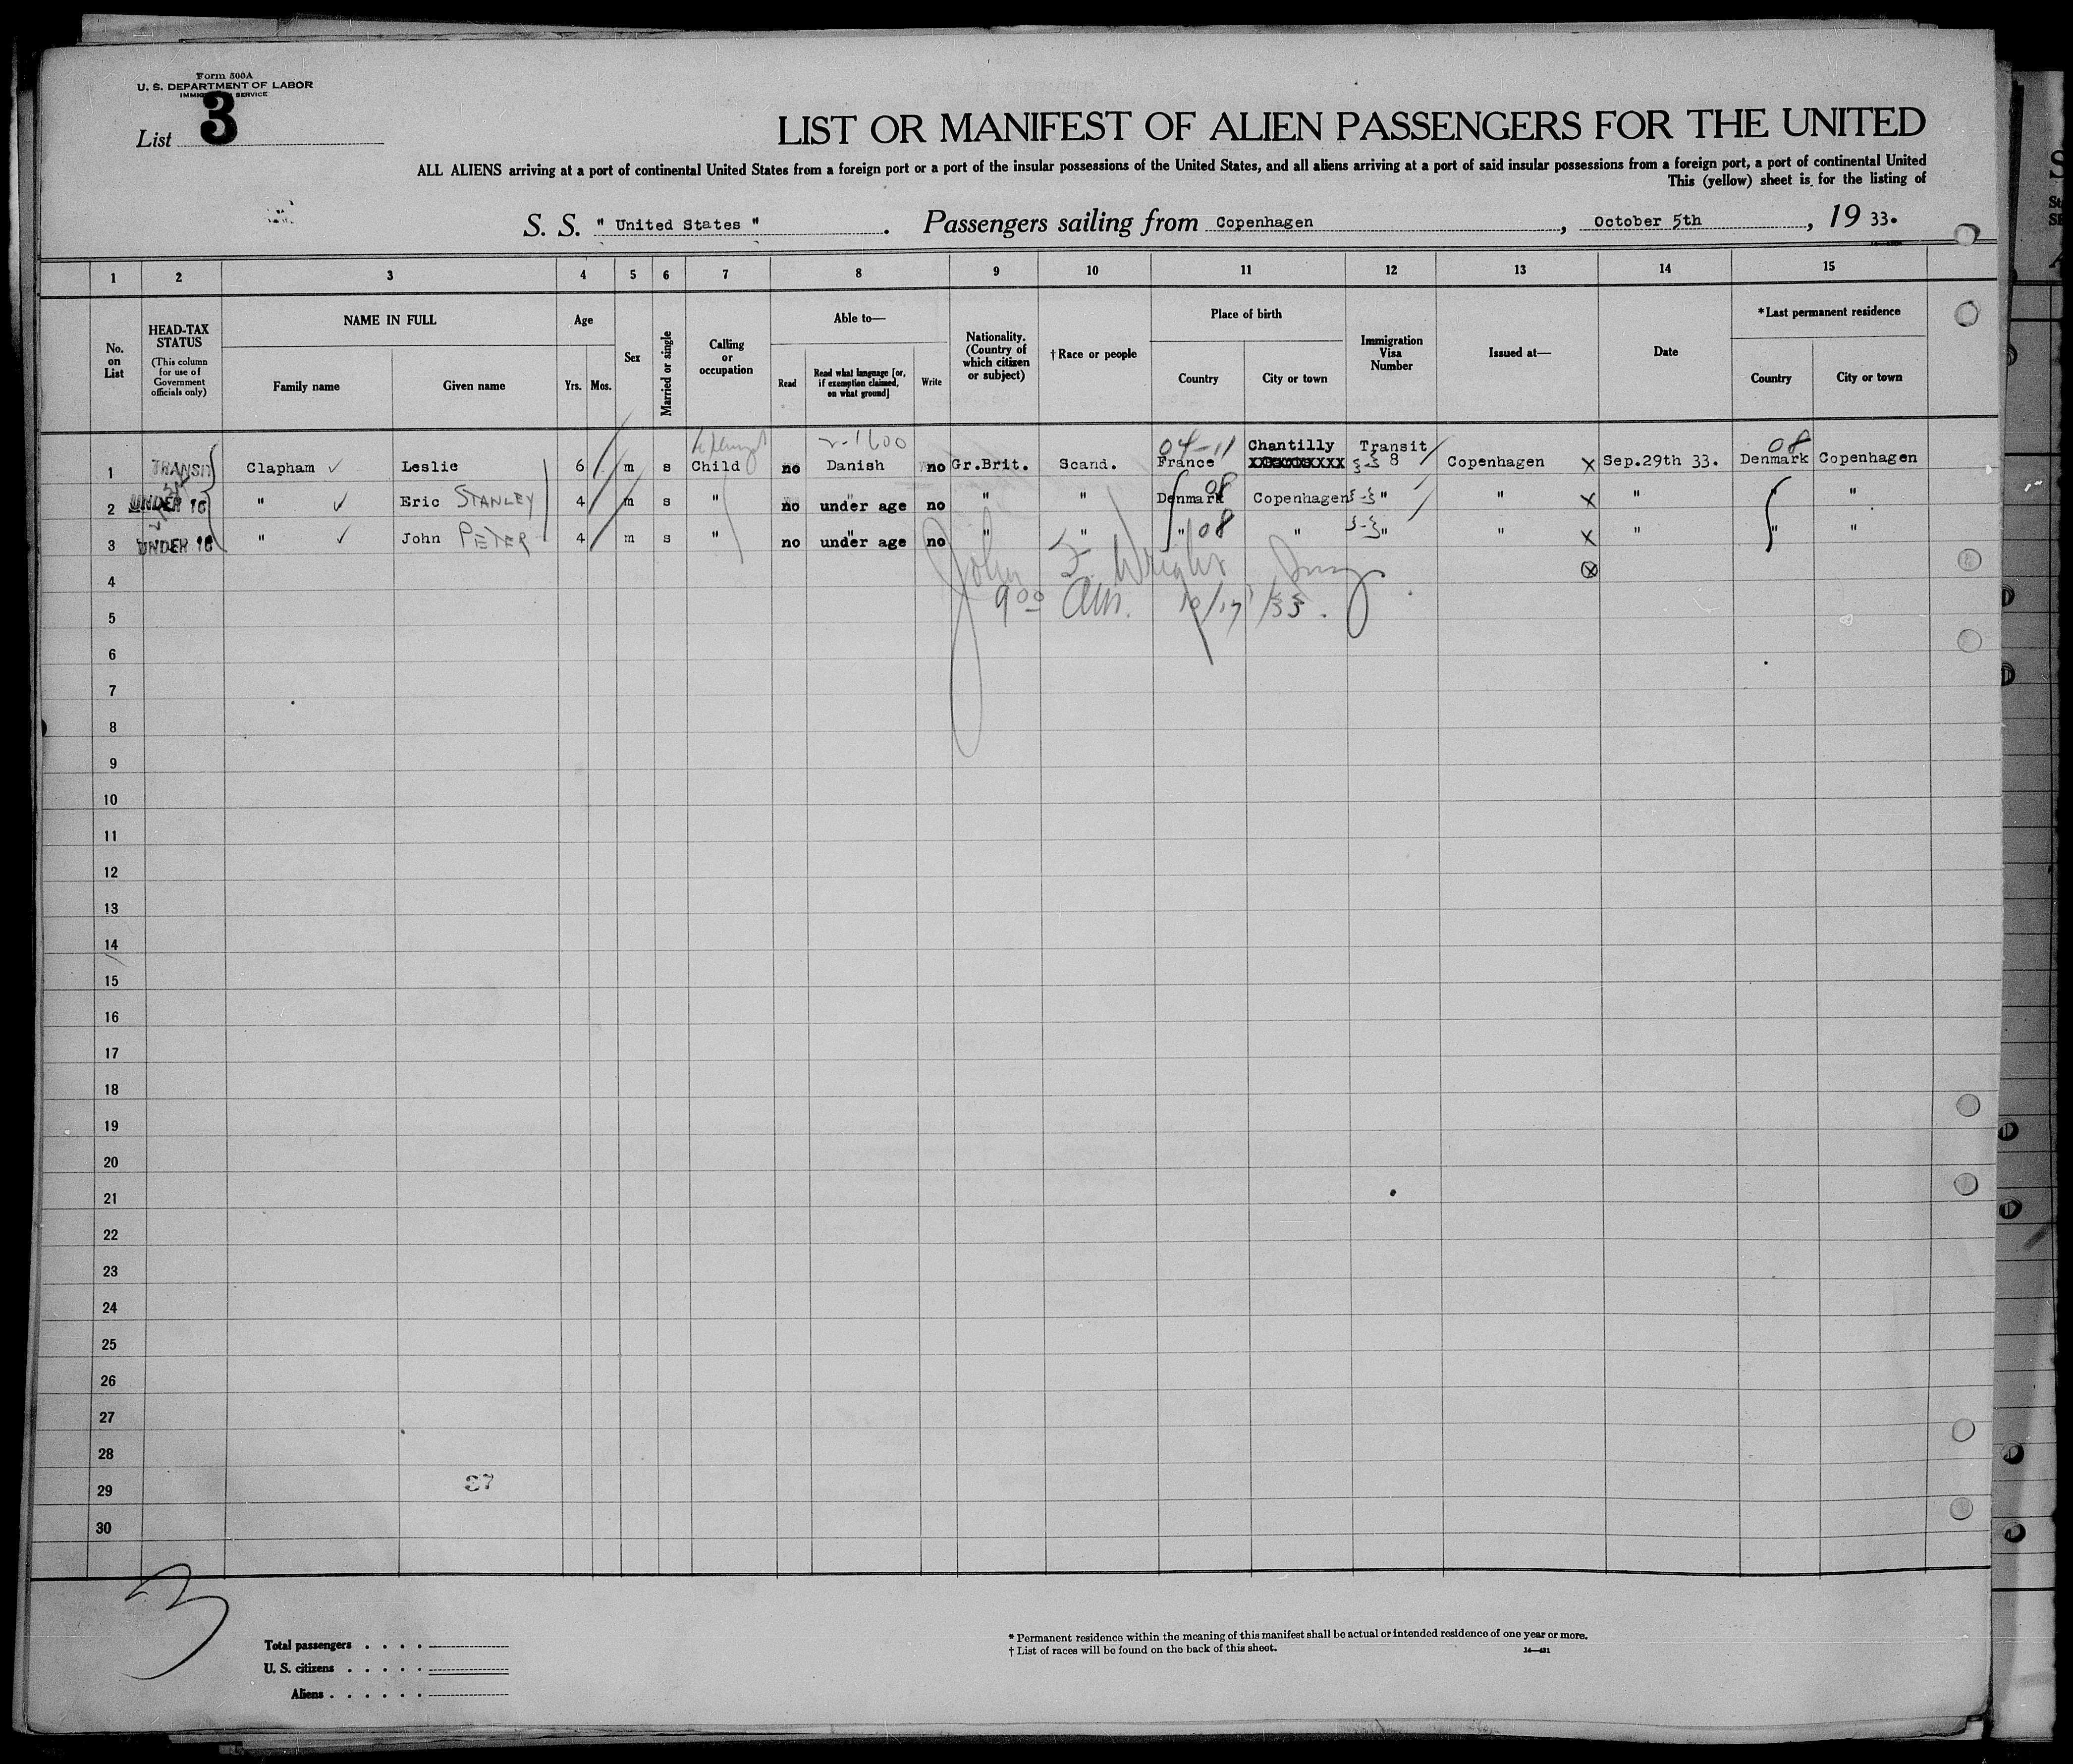 Form 500A
U. S. DEPARTMENT OF LABOR
IMMIGRATION SERVICE
List 3
LIST OR MANIFEST OF ALIEN PASSENGERS FOR THE UNITED
ALL ALIENS arriving at a port of continental United States from a foreign port or a port of the insular possessions of the United States, and all aliens arriving at a port of said insular possessions from a foreign port, a port of continental United
This (yellow) sheet is for the listing of
S. S. " United States ". Passengers sailing from Copenhagen, October 5th, 19 33.
1 2 3 4 5 6 7 8 9 10 11 12 13 14 15
No. on List
HEAD-TAX STATUS
(This column for use of Government officials only)
NAME IN FULL
Family name Given name
Age
Yrs. Mos.
Sex
Married or single
Calling or occupation
Able to—
Read
Read what language [or, if exemption claimed, on what ground]
Write
Nationality. (Country of which citizen or subject)
†Race or people
Place of birth
Country City or town
Immigration Visa Number
Issued at—
Date
*Last permanent residence
Country City or town
04-11 Chantilly Transit 08
1 TRANSIT Clapham Leslie 6 m s Child no Danish no Gr.Brit. Scand. France XXXXXXXXXX 8 Copenhagen X Sep.29th 33. Denmark Copenhagen
2 UNDER 16 " Eric STANLEY 4 m s " no under age no " " Denmark 08 Copenhagen " " X " " "
3 UNDER 16 " John PETER 4 m s " no under age no " " " 08 " " " X " " "
John F. Wright
4
9 00 am. 10/17/33.
5
6
7
8
9
10
11
12
13
14
15
16
17
18
19
20
21
22
23
24
25
26
27
28
29 37
30
3
Total passengers . . . .
U. S. citizens . . . . .
Aliens . . . . . .
* Permanent residence within the meaning of this manifest shall be actual or intended residence of one year or more.
† List of races will be found on the back of this sheet.